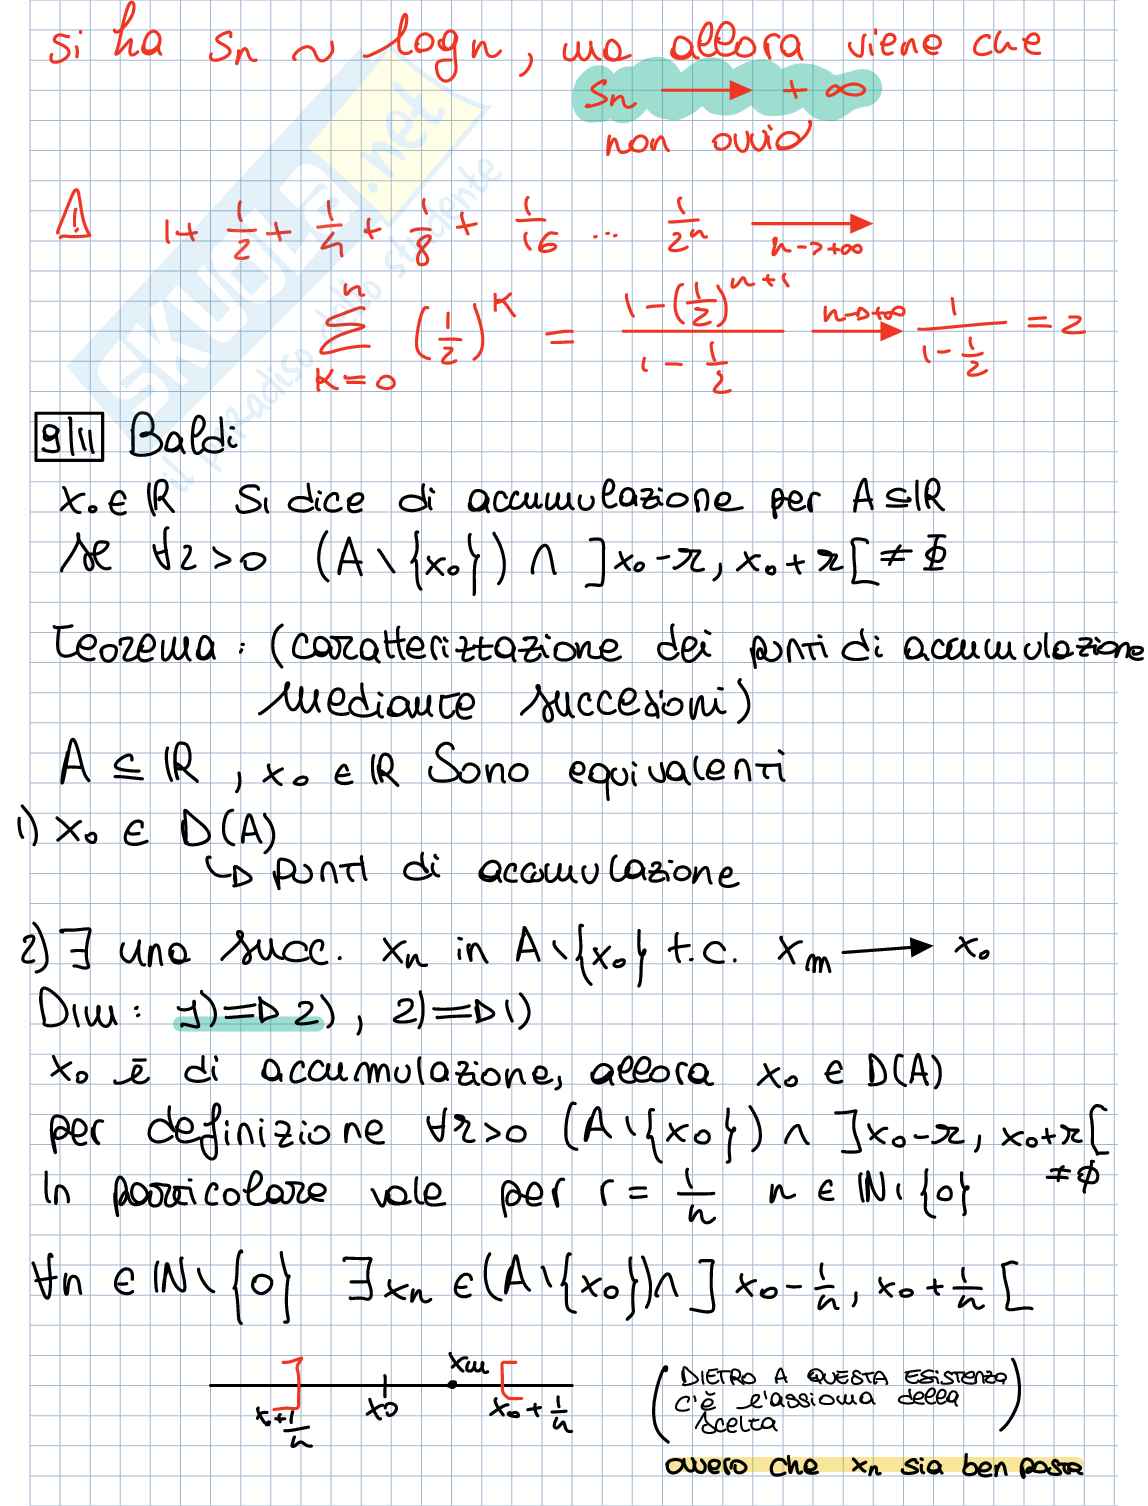 si ha Sn ~ log n, ma allora viene che
Sn → +∞
non ovvio
⚠ 1+ 1/2 + 1/4 + 1/8 + 1/16 ... 1/2^n → n->+∞
∑_{K=0}^{n} (1/2)^K = (1-(1/2)^{n+1})/(1-1/2) → n→+∞ 1/(1-1/2) = 2
9/11 Baldi
x₀ ∈ ℝ si dice di accumulazione per A ⊆ ℝ
se ∀r>0 (A \ {x₀}) ∩ ]x₀-r, x₀+r[ ≠ Φ
Teorema: (caratterizzazione dei punti di accumulazione
mediante successioni)
A ⊆ ℝ, x₀ ∈ ℝ Sono equivalenti
1) x₀ ∈ D(A)
↳ punti di accumulazione
2) ∃ una succ. xn in A\{x₀} t.c. xm → x₀
Dim: 1) ⇒ 2), 2) ⇒ 1)
x₀ è di accumulazione, allora x₀ ∈ D(A)
per definizione ∀r>0 (A\{x₀}) ∩ ]x₀-r, x₀+r[
≠ Φ
In particolare vale per r = 1/n n ∈ ℕ\{0}
∀n ∈ ℕ\{0} ∃ xn ∈ (A\{x₀}) ∩ ]x₀-1/n, x₀+1/n[
xm
x₀+1/n x₀ x₀+1/n
(DIETRO A QUESTA ESISTENZA
c'è l'assioma della
scelta)
ovvero che xn sia ben posta
SKUOLA.net
il paradiso dello studente